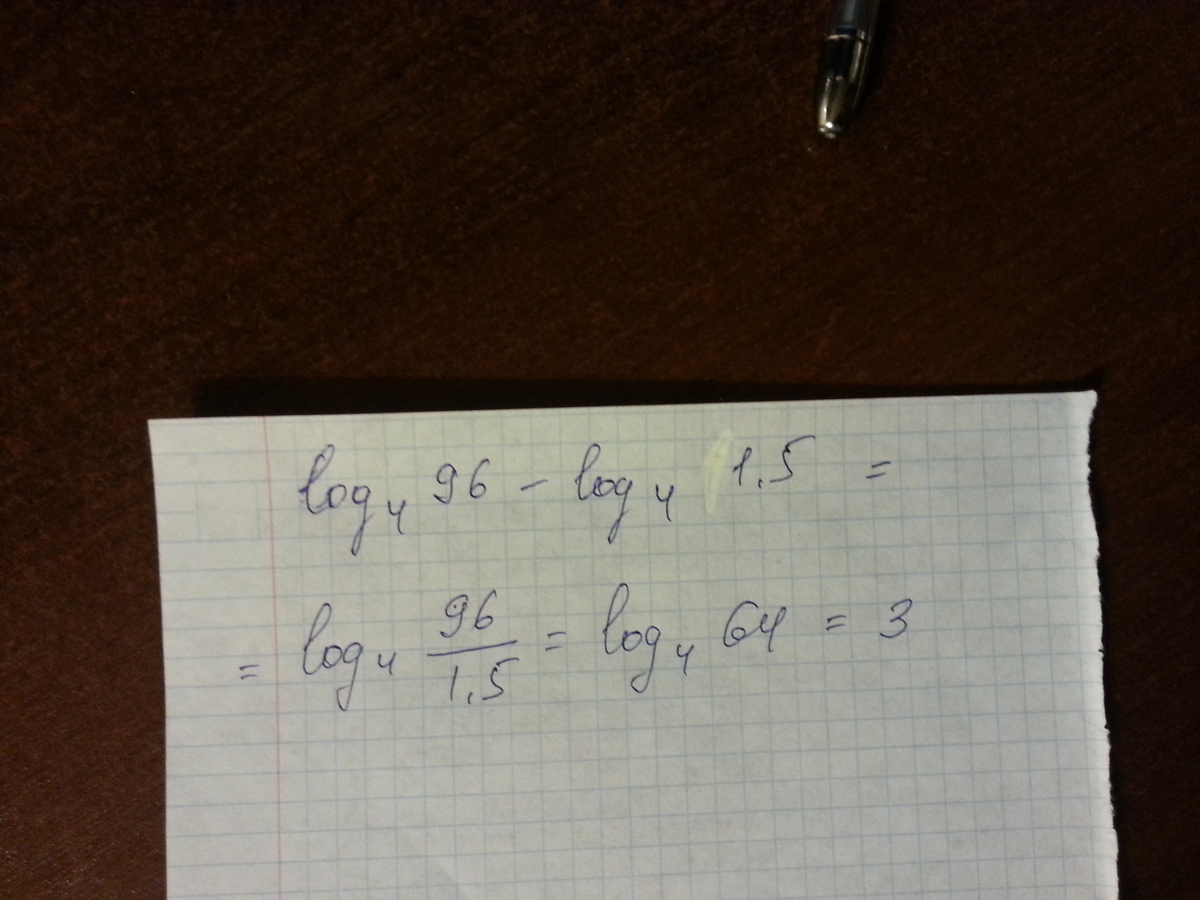 log₄ 96 − log₄ 1.5 =
= log₄ 96/1.5 = log₄ 64 = 3